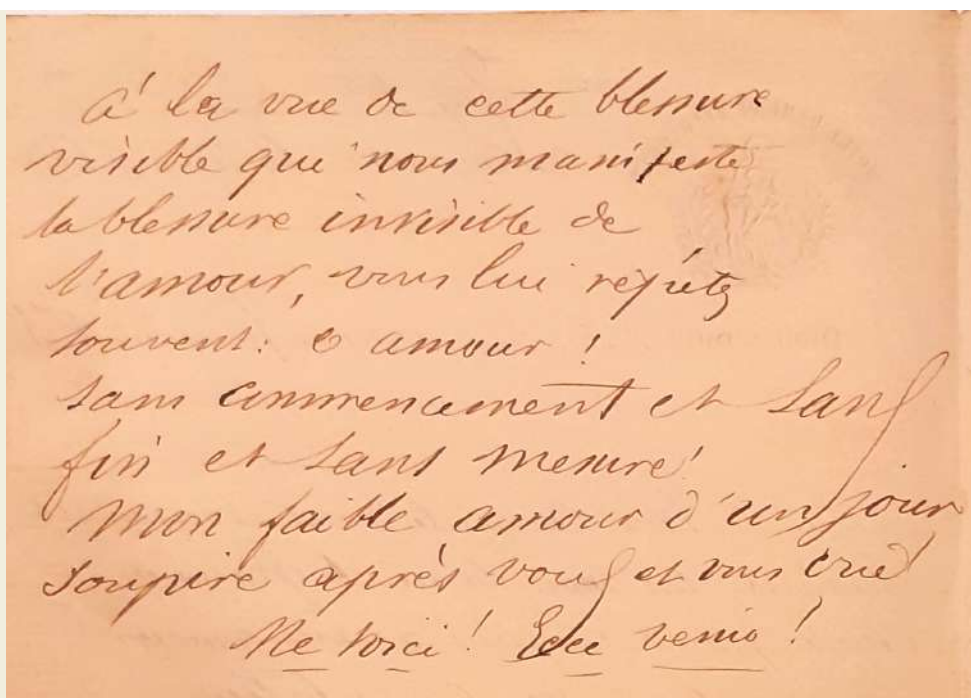 à la vue de cette blessure
visible que nous manifeste
la blessure invisible de
l'amour, vous lui répétez
souvent: O amour !
sans commencement et sans
fin et sans mesure !
Mon faible amour d'un jour
soupire après vous et vous crie
Me voici ! Ecce venio !